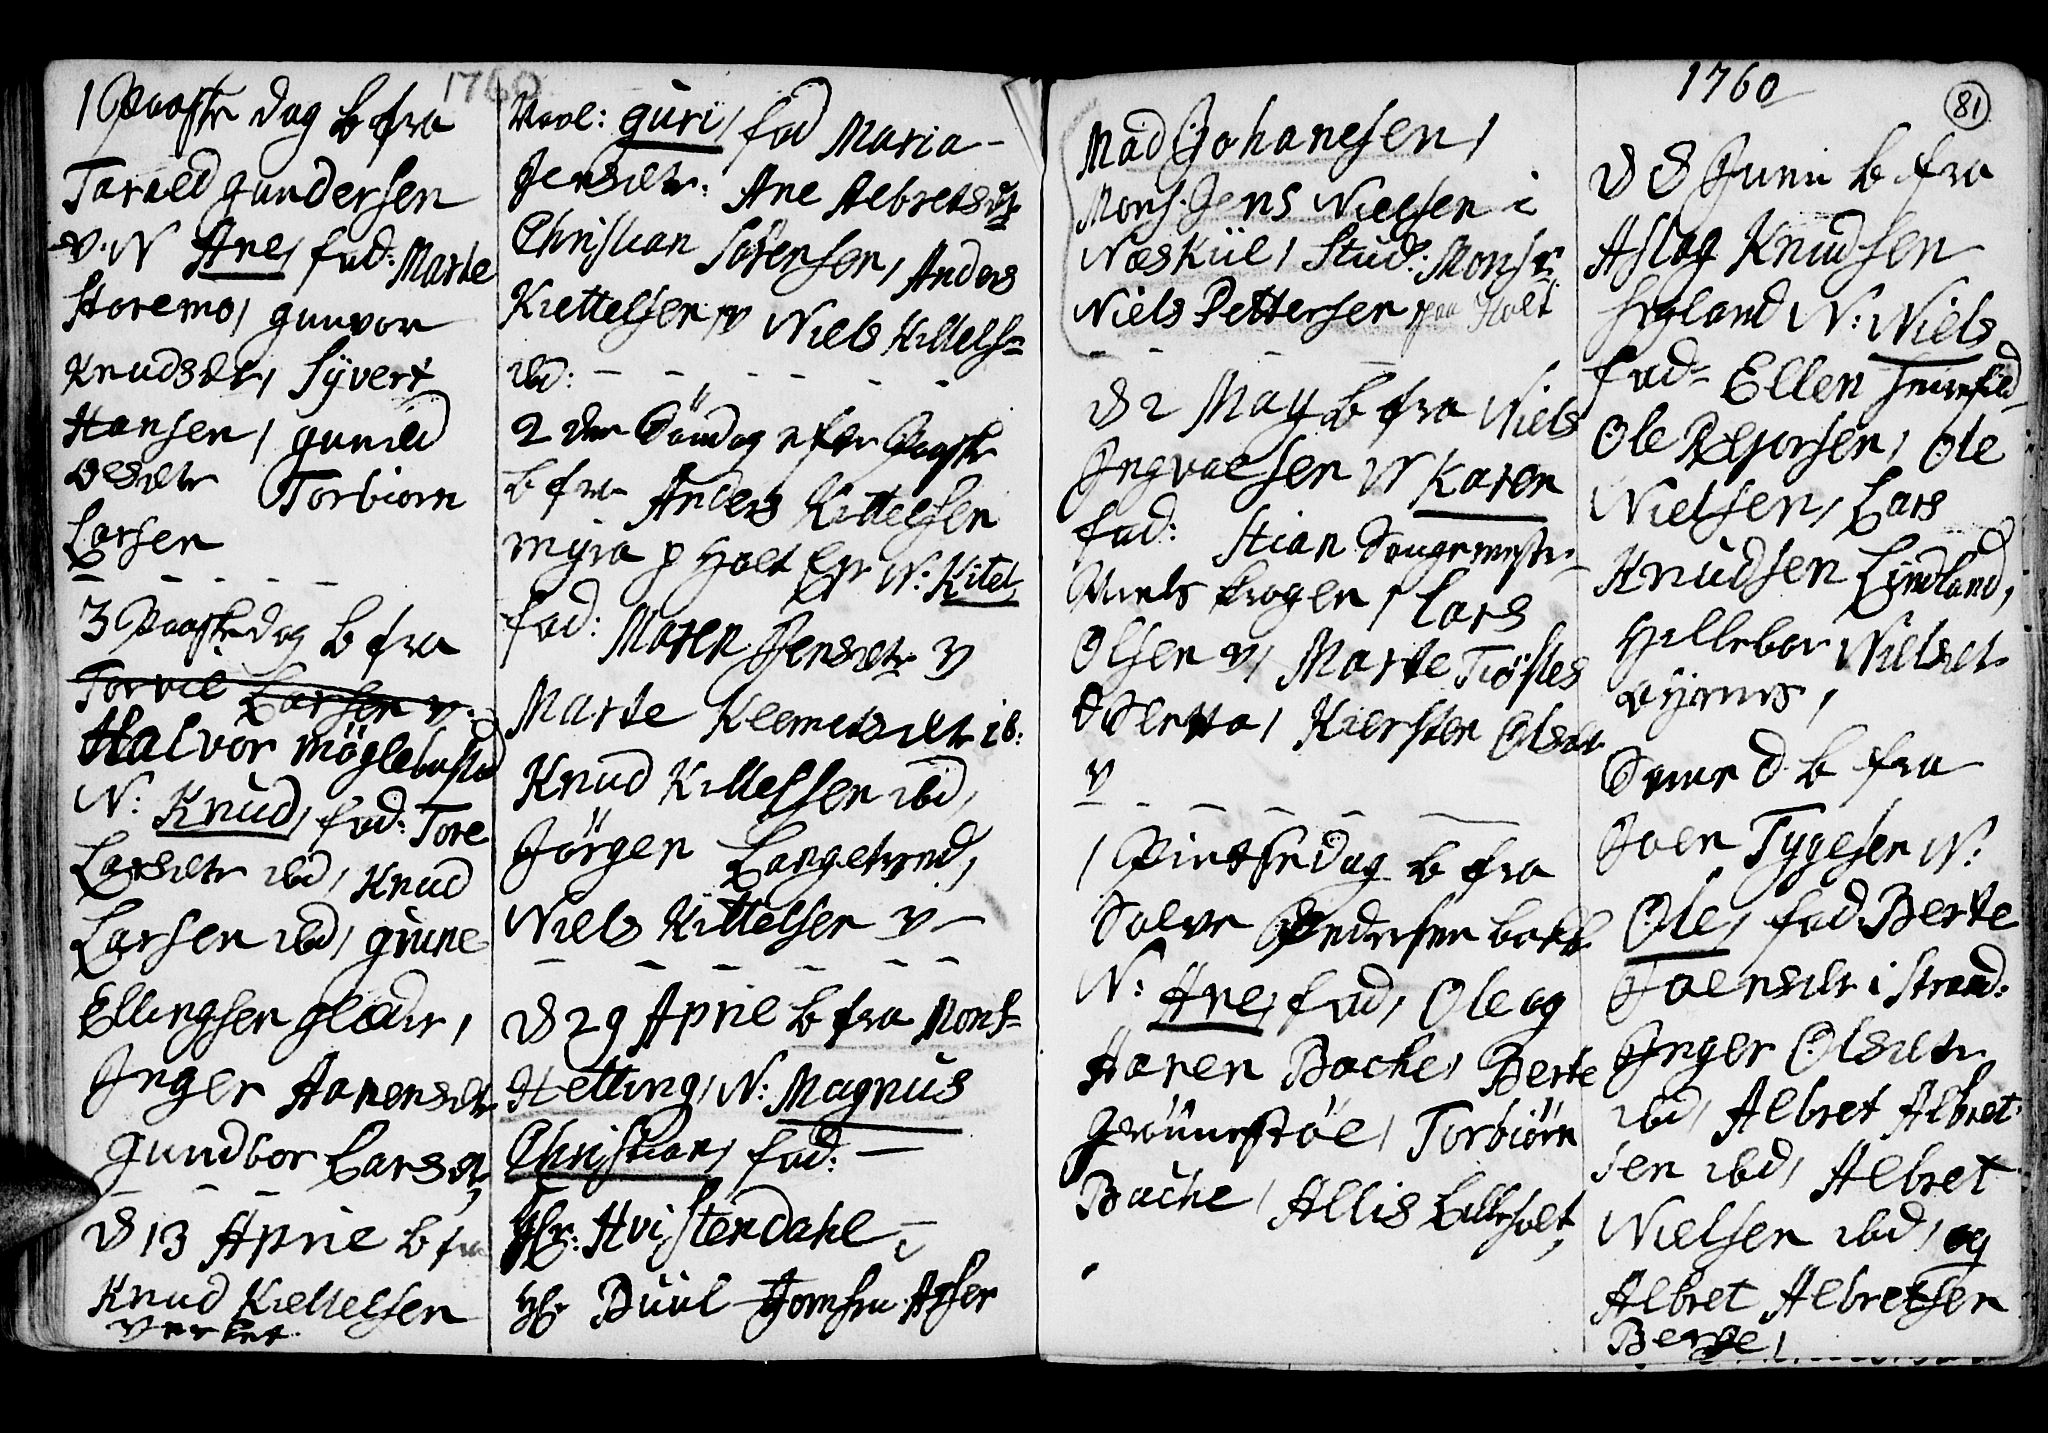 1760
1 Paaske dag b fra
Tarald gundersen
v. N Ane, fad: Marte
Storemo, gunvor
Knudsdtr, Syvert
Hansen, gunild
Olsdtr Torbiorn
Larsen
3 Paaskedag b fra
Torvil Larsen v.
Halvor möglebust
N: Knud, fad: Tore
Larsdtr ibd, Knud
Larsen ibd, grune
Ellingsen
Inger Aanensdtr
gundbor Larsdt,
D 13 April b fra
Knud Kiettelsen
verket
guri, fad Maria
Jensdtr: Ane Albretsdtr
Christian Sörensen, Anders
Kiettelsen, v Niels Kittels=
ibd:
2 den Söndag efter Paaske
b fra Anders Kittelsen
myra p Holt N: Kitel,
fad: Maren Jensdtr v
Marte Klemetsdtr ib:
Knud Kittelsen ibd,
Jörgen Langetved,
Niels Kittelsen v
D 29 April b fra Mons=
Helting, N: Magnus
Christian, fad:
Hr: Hvistendahl
Hr Buul Jomfru
1760
81
Mad Johanesen,
Mons. Jens Nielsen i
Næskiil, Stud: Monsr
Niels Pettersen paa Holt
D 2 May b fra Niels
Ingvalsen N Karen
fad: Stian
Niels Krogen, Lars
Olsen v, Marte
Kiersten Olsdt
v
1 Pintsedag b fra
Salve Pedersen
N: Ane, fad, Ole og
Aanen Bache, Berte
Torbiörn
Bache, Allis Lilleholt,
D 8 Juni b fra
Aslag Knudsen
N: Niels
fad= Ellen
Ole Ole
Nielsen, Lars
Knudsen Lindland,
Hillebor Nielsdt
Same D b fra
Joen Tygesen N:
Ole, fad Berte
Joensdtr i Strand:
Inger Olsdtr
ibd, Albret Albret
sen ibd, Albret
Nielsen ibd, og
Albret Albretsen
Berge,